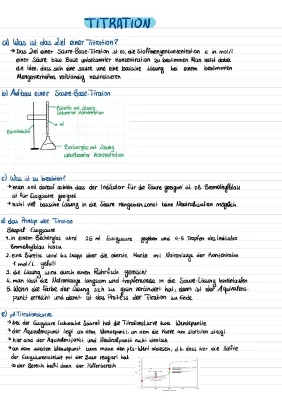 TITRATION
a) Was ist das Ziel einer Titration?
→ Das Ziel einer Säure-Base-Titration ist es, die Stoffmengenkonzentration c in mol/l
einer Säure bzw. Base unbekannter Konzentration zu bestimmen. Man nutzt dabei
die Idee, dass sich eine saure und eine basische Lösung bei einem bestimmten
Mengenverhältnis vollständig neutralisieren
b) Aufbau einer Säure-Base-Titration
Bürette mit Lösung
bekannter Konzentration
Becherglas mit Lösung
unbekannter Konzentration
c) Was ist zu beachten?
→ man soll darauf achten dass der Indikator für die Säure geeignet ist z.B. Bromthymolblau
ist für Essigsäure geeignet
→ nicht viel basische Lösung in die Säure reingeben, sonst keine Neutralisation möglich
d) das Prinzip der Titration
Beispiel Essigsäure
1. in einem Becherglas wird 25 ml Essigsäure gegeben und 4-5 Tropfen des Indikators
Bromthymolblau hinzu
2. eine Bürette wird bis knapp über die oberste Marke mit Natronlauge der Konzentration
1 mol/l gefüllt
3. die Lösung wird durch einen Rührfisch gemischt
4. man lässt die Natronlauge langsam und tropfenweise in die Säure-Lösung hineinlaufen
5. Wenn die Farbe der Lösung sich zu grün verändert hat, dann ist der Äquivalenz-
punkt erreicht und damit ist der Prozess der Titration zu Ende
e) pH-Titrationskurve
→ bei der Essigsäure (schwache Säure) hat die Titrationskurve zwei Wendepunkte
→ der Äquivalenzpunkt liegt an dem Wendepunkt, an dem die Kurve am steilsten steigt
→ hier sind der Äquivalenzpunkt und Neutralpunkt nicht identisch
→ an dem zweiten Wendepunkt kann man den pKs-Wert ablesen, d.h. dass hier die Hälfte
der Essigsäuremoleküle mit der Base reagiert hat
→ der Bereich heißt dann der Pufferbereich